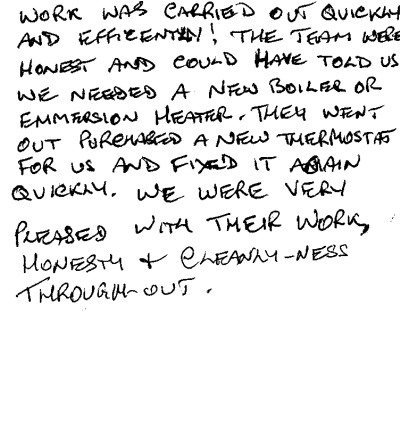 WORK WAS CARRIED OUT QUICKLY
AND EFFICENTLY! THE TEAM WERE
HONEST AND COULD HAVE TOLD US
WE NEEDED A NEW BOILER OR
EMMERSION HEATER. THEY WENT
OUT PURCHASED A NEW THERMOSTAT
FOR US AND FIXED IT AGAIN
QUICKLY. WE WERE VERY
PLEASED WITH THEIR WORK,
HONESTY + CLEANLY-NESS
THROUGH-OUT.